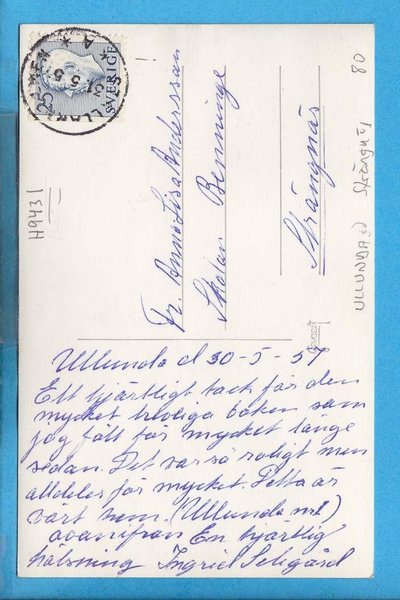 Fr. Anna Lisa Andersson
Skolan Benninge
Strängnäs
Ullunda d 30-5-57
Ett hjärtligt tack för den
mycket trevliga boken som
jag fått för mycket länge
sedan. Det var så roligt men
alldeles för mycket. Detta är
vårt hem. (Ullunda
ovanifrån En hjärtlig
hälsning Ingrid
SVERIGE
25
H9431
ULLUNDA
80